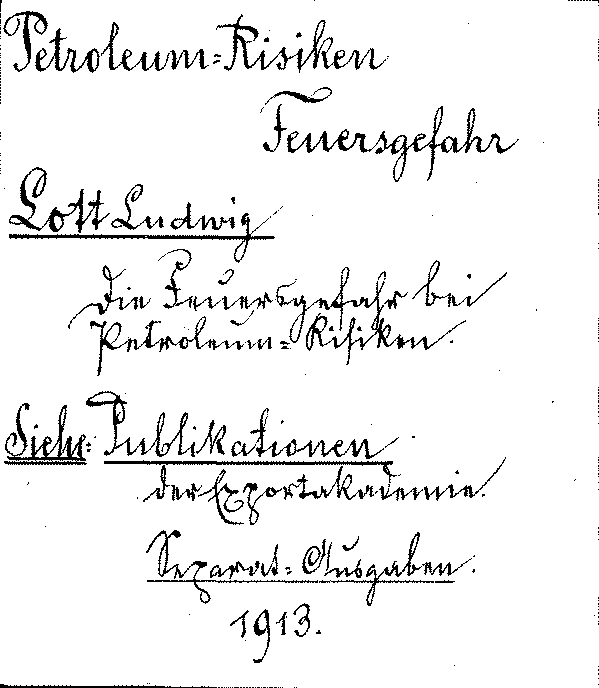 Petroleum=Risiken
Feuersgefahr
Lott Ludwig
Die Feuersgefahr bei
Petroleum=Risiken.
Siehe: Publikationen
der Exportakademie.
Separat=Ausgaben.
1913.